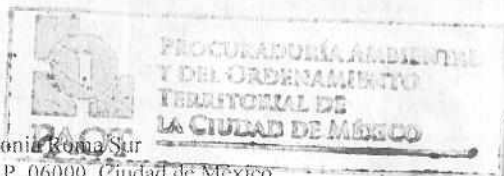 PROCURADURÍA AMBIENTAL
Y DEL ORDENAMIENTO
TERRITORIAL DE
LA CIUDAD DE MÉXICO
PAOT
onia Roma Sur
P. 06000, Ciudad de México